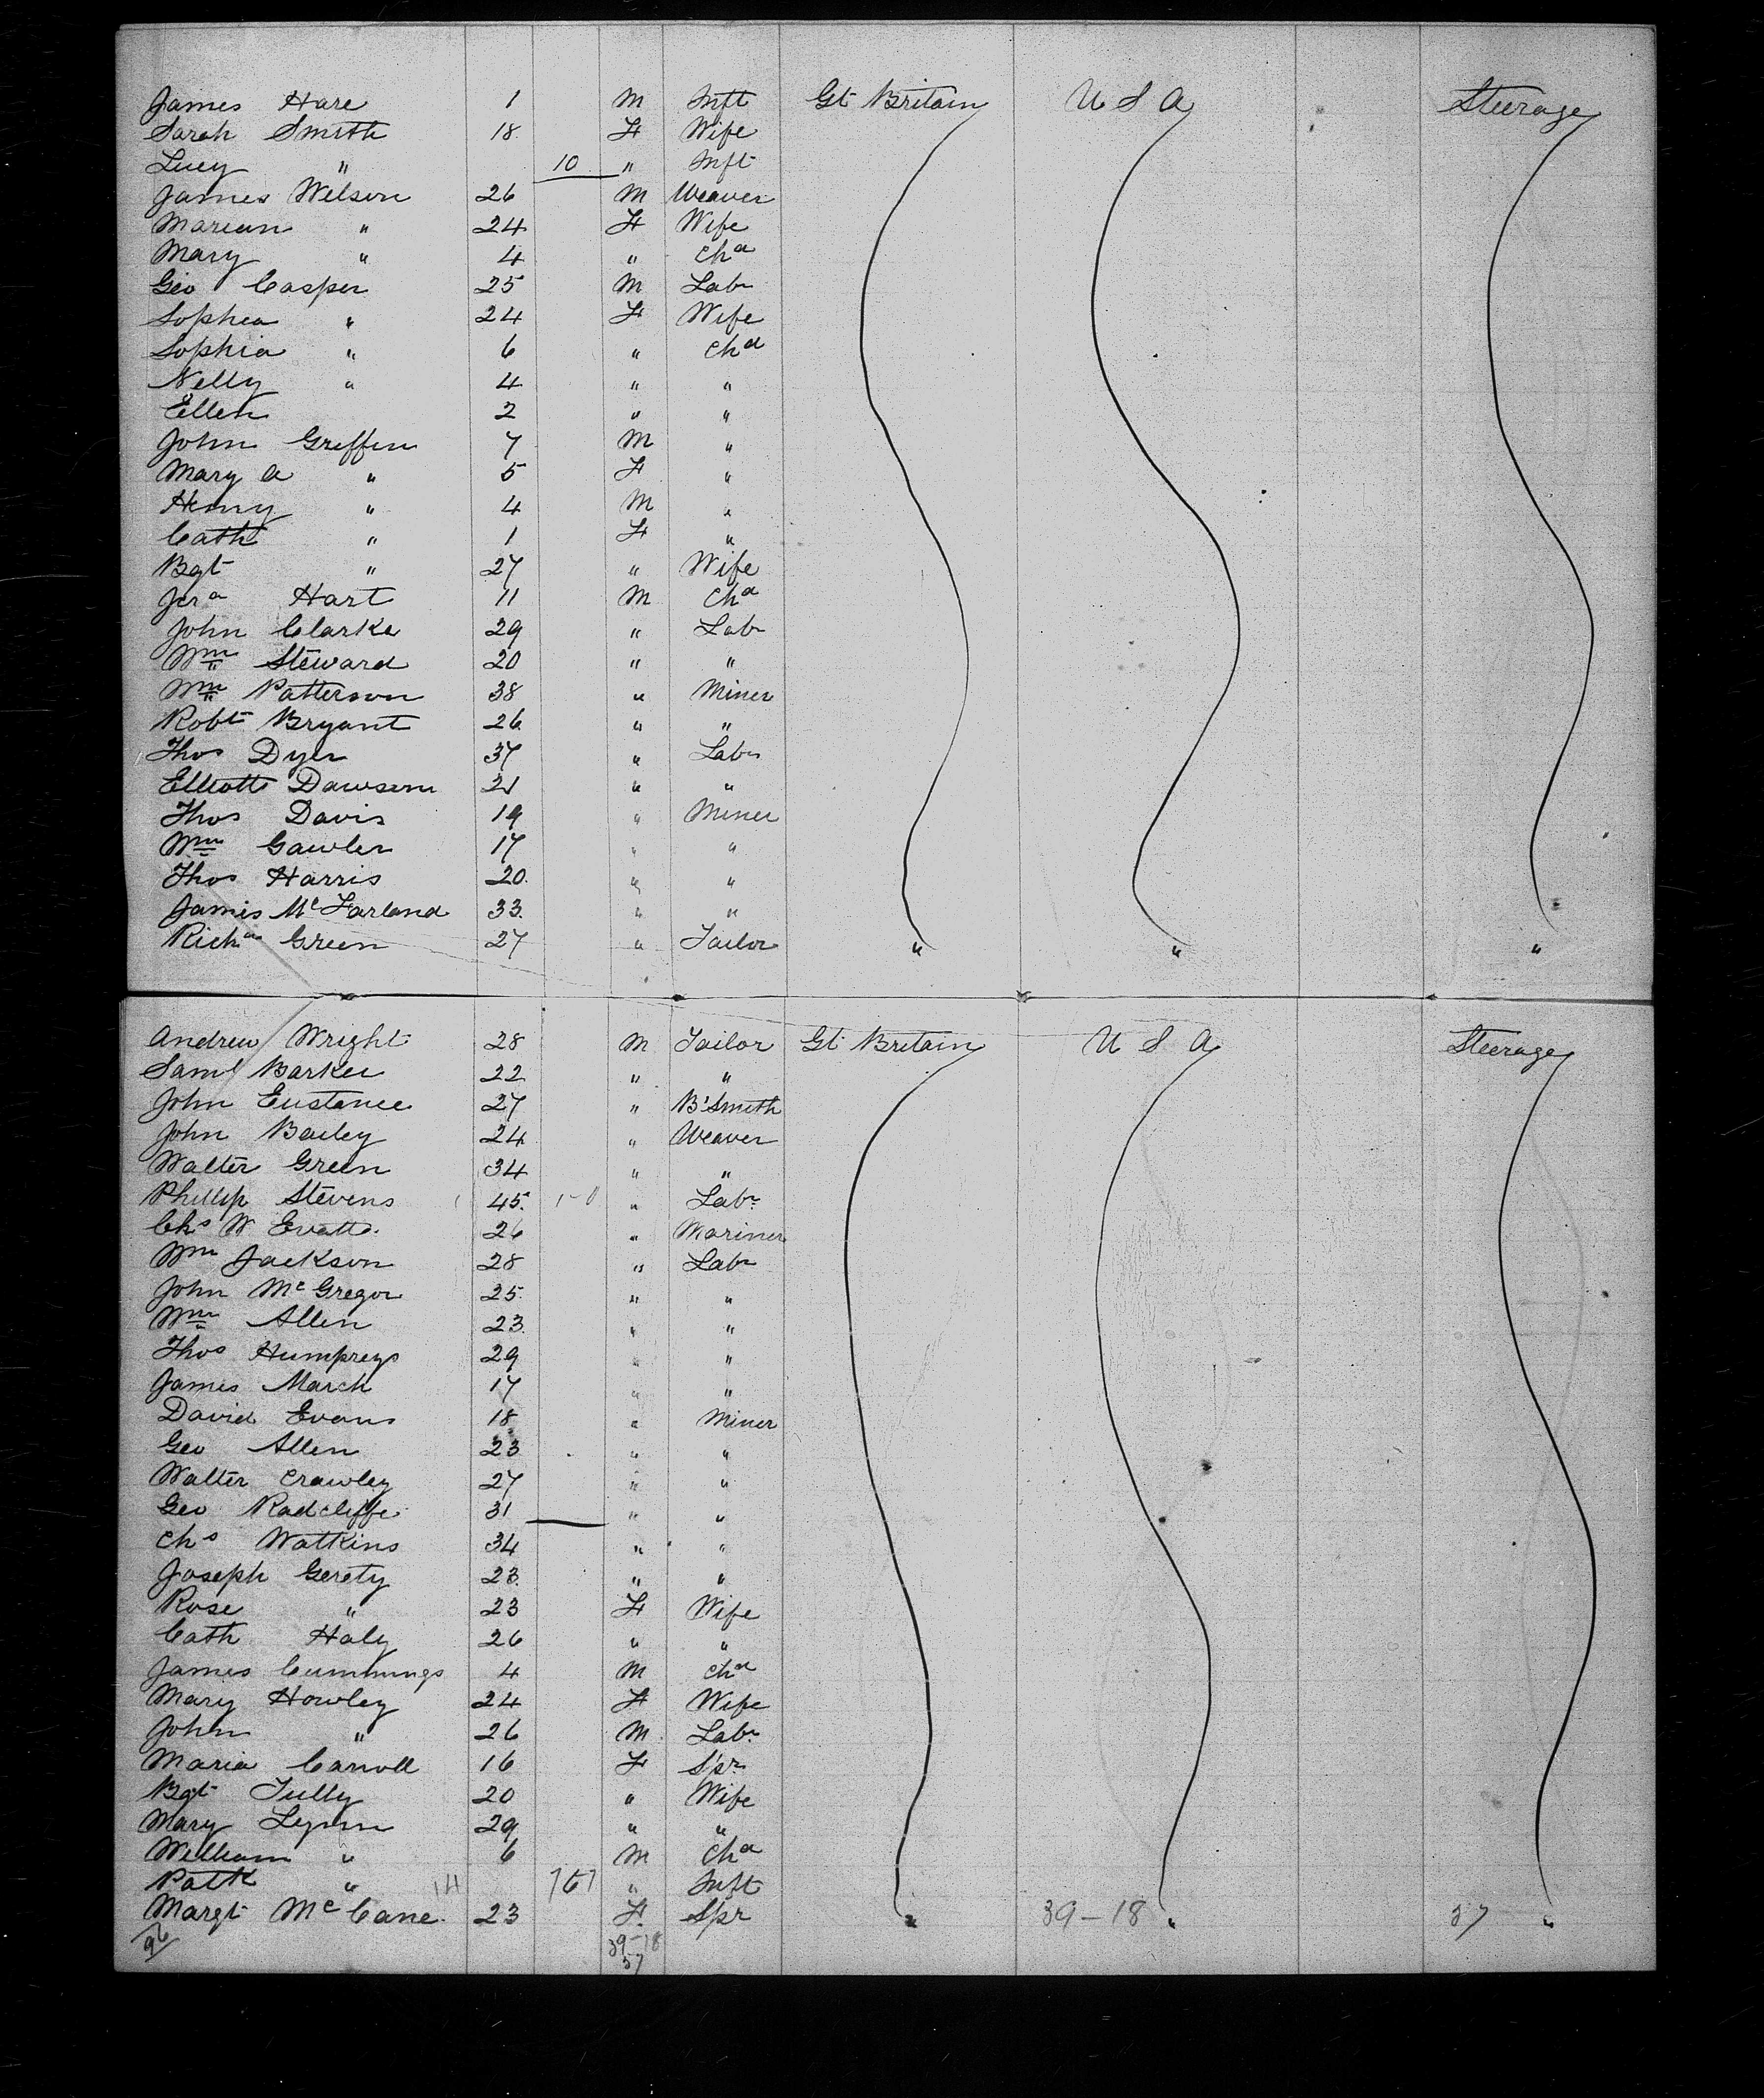 James Hare 1 M Inft Gt Britain U S A Steerage
Sarah Smith 18 F Wife
Lucy " 10 " Inft
James Wilson 26 M Weaver
Marian " 24 F Wife
Mary " 4 " Chd
Geo Casper 25 M Labr
Sophia " 24 F Wife
Sophia " 6 " Chd
Nelly " 4 " "
Ellen 2 " "
John Griffin 7 M "
Mary A " 5 F "
Henry " 4 M "
Cath " 1 F "
Bgt " 27 " Wife
Jera Hart 11 M Chd
John Clarke 29 " Labr
Wm Steward 20 " "
Wm Patterson 38 " Miner
Robt Bryant 26 " "
Thos Dyer 37 " Labr
Elliott Dawson 21 " "
Thos Davis 19 " Miner
Wm Gawler 17 " "
Thos Harris 20 " "
James McFarland 33 " "
Richd Green 27 " Tailor " " "
Andrew Wright 28 M Tailor Gt Britain U S A Steerage
Saml Barker 22 " "
John Eustance 27 " B'Smith
John Bailey 24 " Weaver
Walter Green 34 " "
Phillip Stevens 45 " Labr
Chs W Evatts 26 " Mariner
Wm Jackson 28 " Labr
John McGregor 25 " "
Wm Allen 23 " "
Thos Humpreys 29 " "
James March 17 " "
David Evans 18 " Miner
Geo Allen 23 " "
Walter Crawley 27 " "
Geo Radcliffe 31 " "
Chs Watkins 34 " "
Joseph Gerety 23 " "
Rose " 23 F Wife
Cath Haly 26 " "
James Cummings 4 M Chd
Mary Howley 24 F Wife
John " 26 M Labr
Maria Carroll 16 F Spr
Bgt Tully 20 " Wife
Mary Lynn 29 " "
William " 6 M Chd
Patk " 14 " Inft
Margt McCane 23 F Spr " 39-18 " 57 "
96 39-18
57